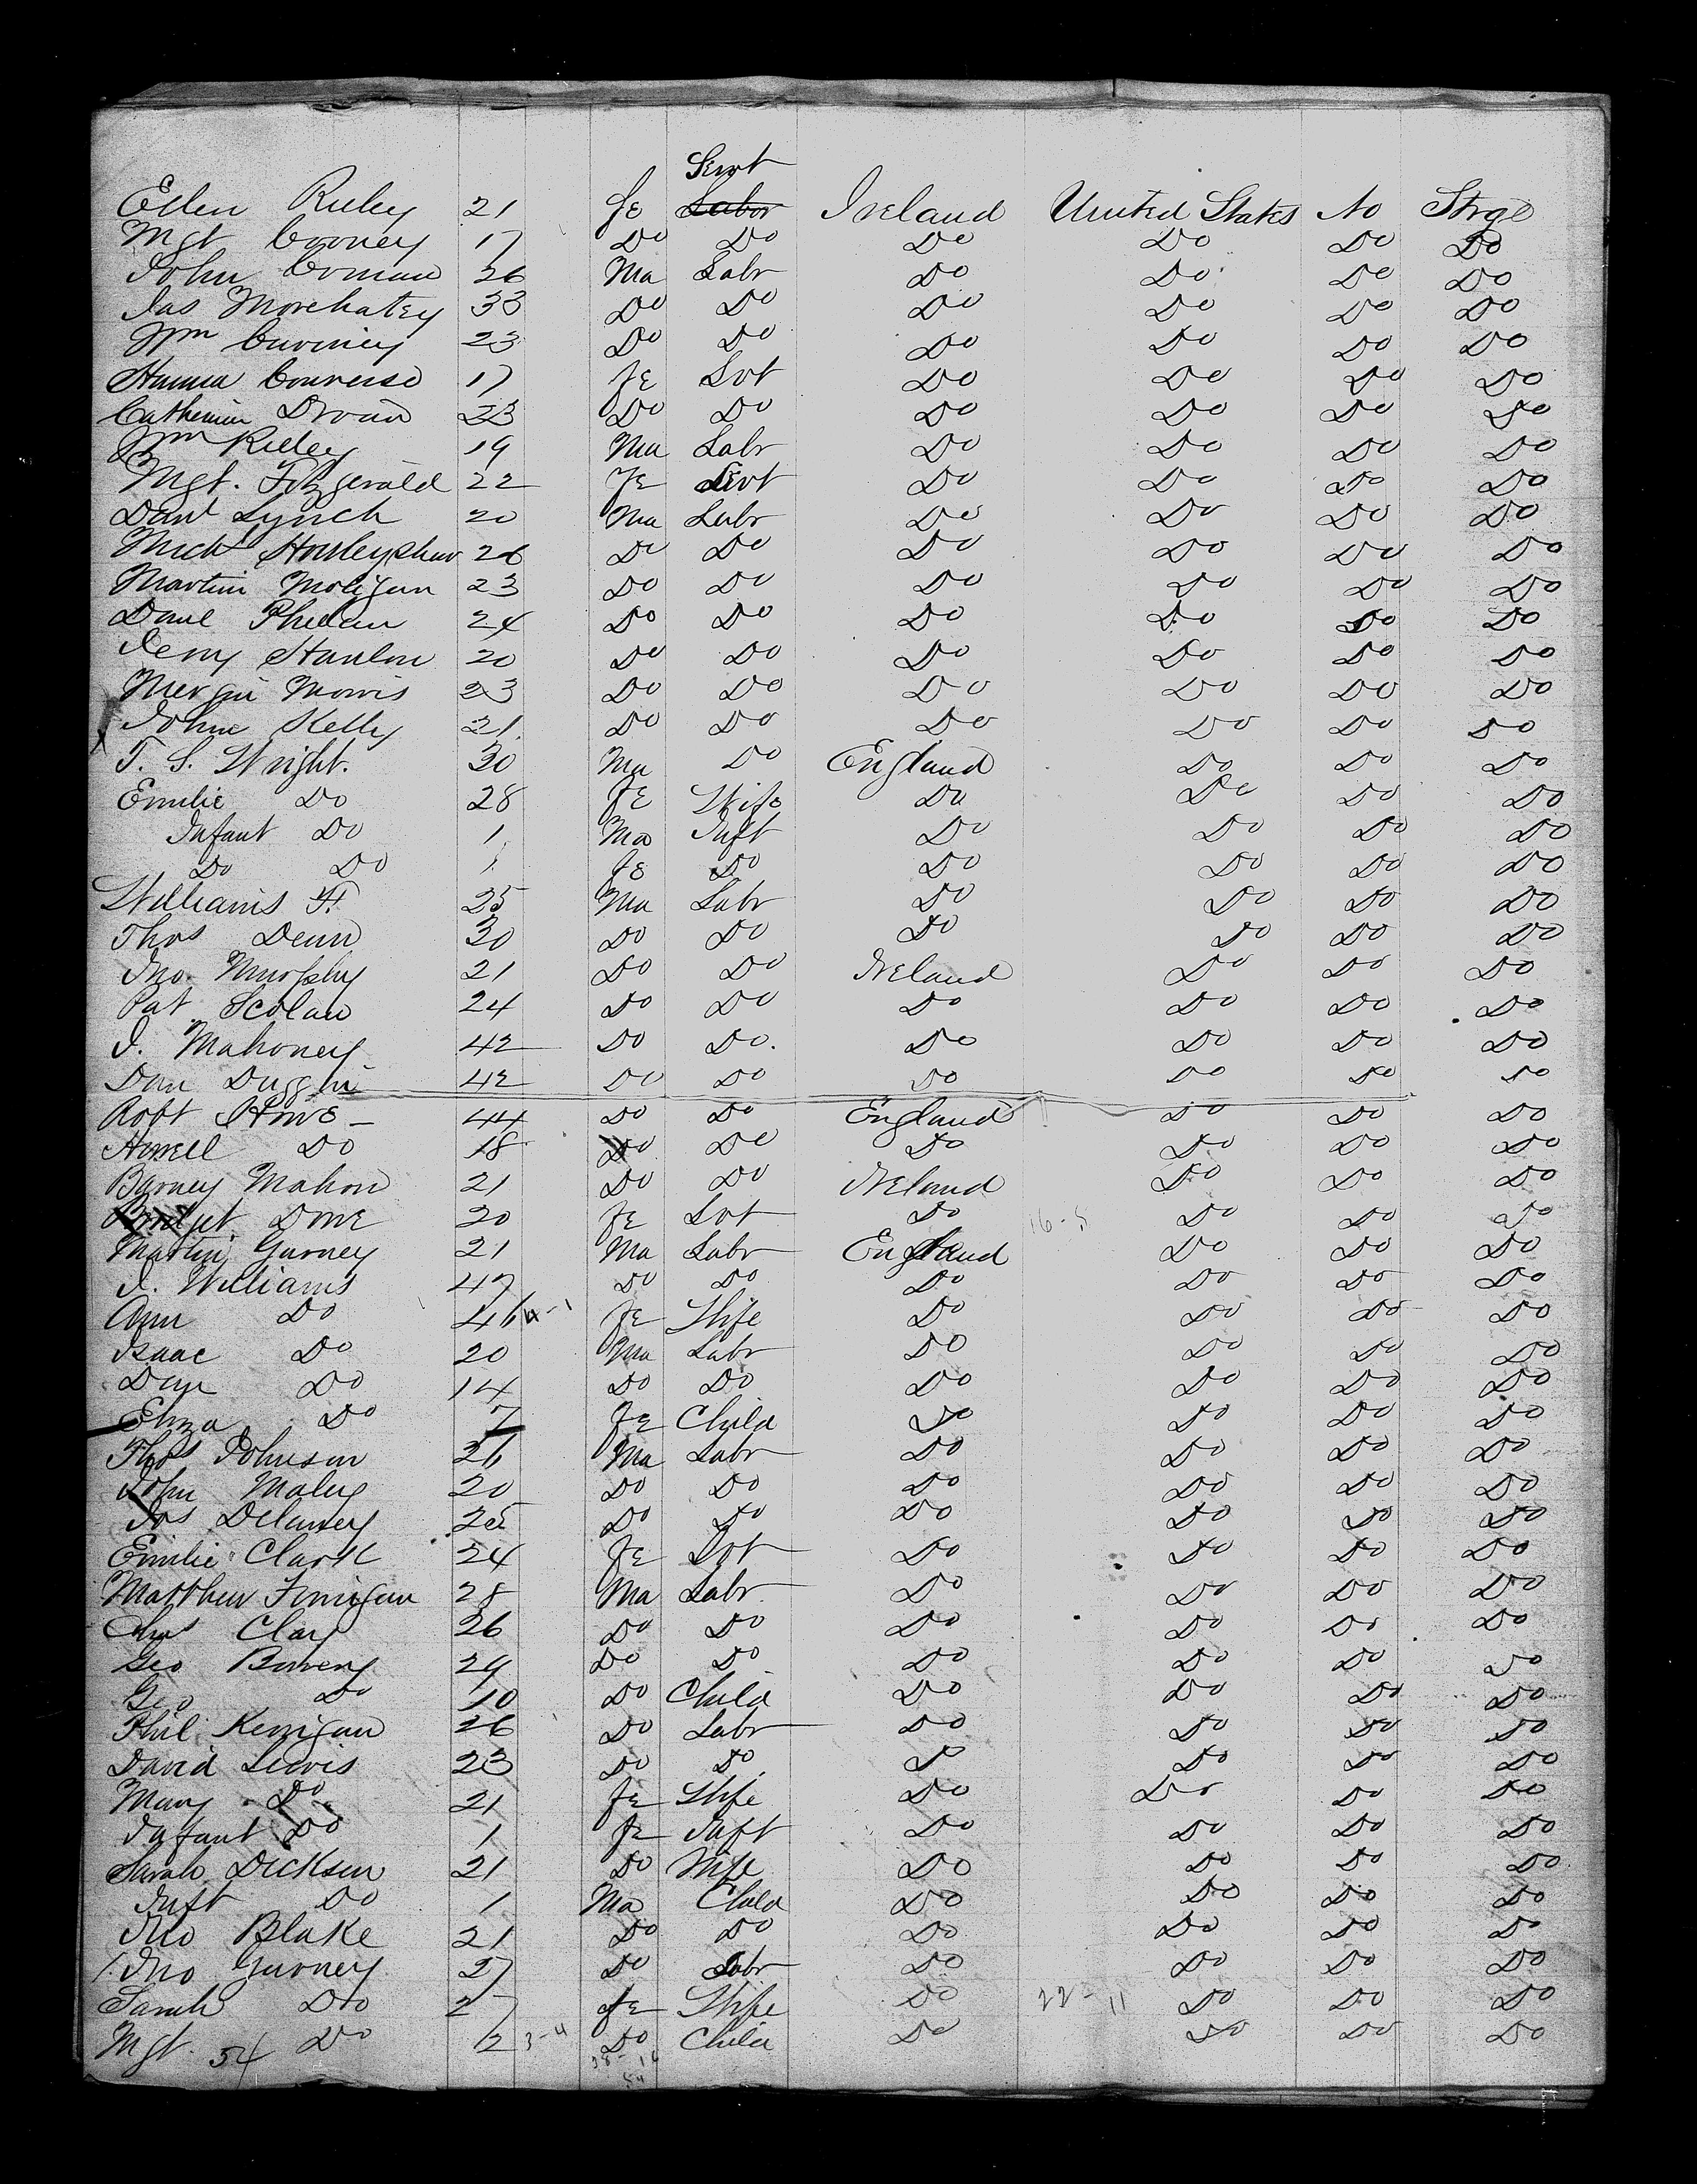 Servt
Ellen Riley 21 Fe Labor Ireland United States No Strge
Mgt Cooney 17 Do Do Do Do Do Do
John 26 Ma Labr Do Do Do Do
Jas 33 Do Do Do Do Do Do
Wm 23 Do Do Do Do Do Do
Hanna Converse 17 Fe Svt Do Do Do Do
Catherine 23 Do Do Do Do Do Do
Wm Riley 19 Ma Labr Do Do Do Do
Mgt. Fitzgerald 22 Fe Servt Do Do Do Do
Danl Lynch 20 Ma Labr Do Do Do Do
Michl 26 Do Do Do Do Do Do
Martin Moligan 23 Do Do Do Do Do Do
Danl Phelan 24 Do Do Do Do Do Do
Jerry Hanlon 20 Do Do Do Do Do Do
Morris 23 Do Do Do Do Do Do
John Kelly 21 Do Do Do Do Do Do
T. S. Wright. 30 Ma Do England Do Do Do
Emilie Do 28 Fe Wife Do Do Do Do
Infant Do 1 Ma Inft Do Do Do Do
Do Do 1 Fe Do Do Do Do Do
Williams H. 25 Ma Labr Do Do Do Do
Thos Denn 30 Do Do Do Do Do Do
Jno. Murphy 21 Do Do Ireland Do Do Do
Pat Scolan 24 Do Do Do Do Do Do
J. Mahoney 42 Do Do. Do Do Do Do
Dan Duggin 42 Do Do Do Do Do Do
Robt 44 Do Do England Do Do Do
Howell Do 18 Do Do Do Do Do Do
Barney Mahon 21 Do Do Ireland Do Do Do
Bridget 20 Fe Svt Do 16-5 Do Do Do
Martin Gurney 21 Ma Labr England Do Do Do
J. Williams 47 Do Do Do Do Do Do
Ann Do 46 Fe Wife Do Do Do Do
Isaac Do 20 Ma Labr Do Do Do Do
Dan Do 14 Do Do Do Do Do Do
Eliza Do 7 Fe Child Do Do Do Do
Thos Johnson 26 Ma Labr Do Do Do Do
John Maley 20 Do Do Do Do Do Do
Jos Delaney 25 Do Do Do Do Do Do
Emilie Clark 24 Fe Svt Do Do Do Do
Matthew Finnigan 28 Ma Labr Do Do Do Do
Chas Clay 26 Do Do Do Do Do Do
Geo 29 Do Do Do Do Do Do
Geo Do 10 Do Child Do Do Do Do
Phil Kerrigan 26 Do Labr Do Do Do Do
David Lewis 23 Do Do Do Do Do Do
Mary Do 21 Fe Wife Do Do Do Do
Infant Do 1 Fe Inft Do Do Do Do
Sarah Dickson 21 Do Wife Do Do Do Do
Inft Do 1 Ma Child Do Do Do Do
Jno Blake 21 Do Do Do Do Do Do
Jno Gurney 27 Do Labr Do Do Do Do
Sarah Do 27 Fe Wife Do 22-11 Do Do Do
Mgt. Do 2 3-4 Do Child Do Do Do Do
54